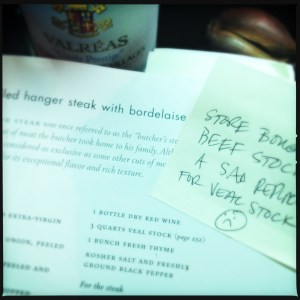 VALRÉAS
hanger steak with bordelaise
STEAK WAS once referred to as the "butcher's
of meat the butcher took home to his family.
considered as exclusive as some other cuts of me
for its exceptional flavor and rich texture.
EXTRA-VIRGIN
ONION, PEELED
PEELED AND
1 BOTTLE DRY RED WINE
3 QUARTS VEAL STOCK (page 222)
1 BUNCH FRESH THYME
KOSHER SALT AND FRESHLY
GROUND BLACK PEPPER
For the steak
STORE
BEEF STOCK
A SAD
FOR VEAL STOCK